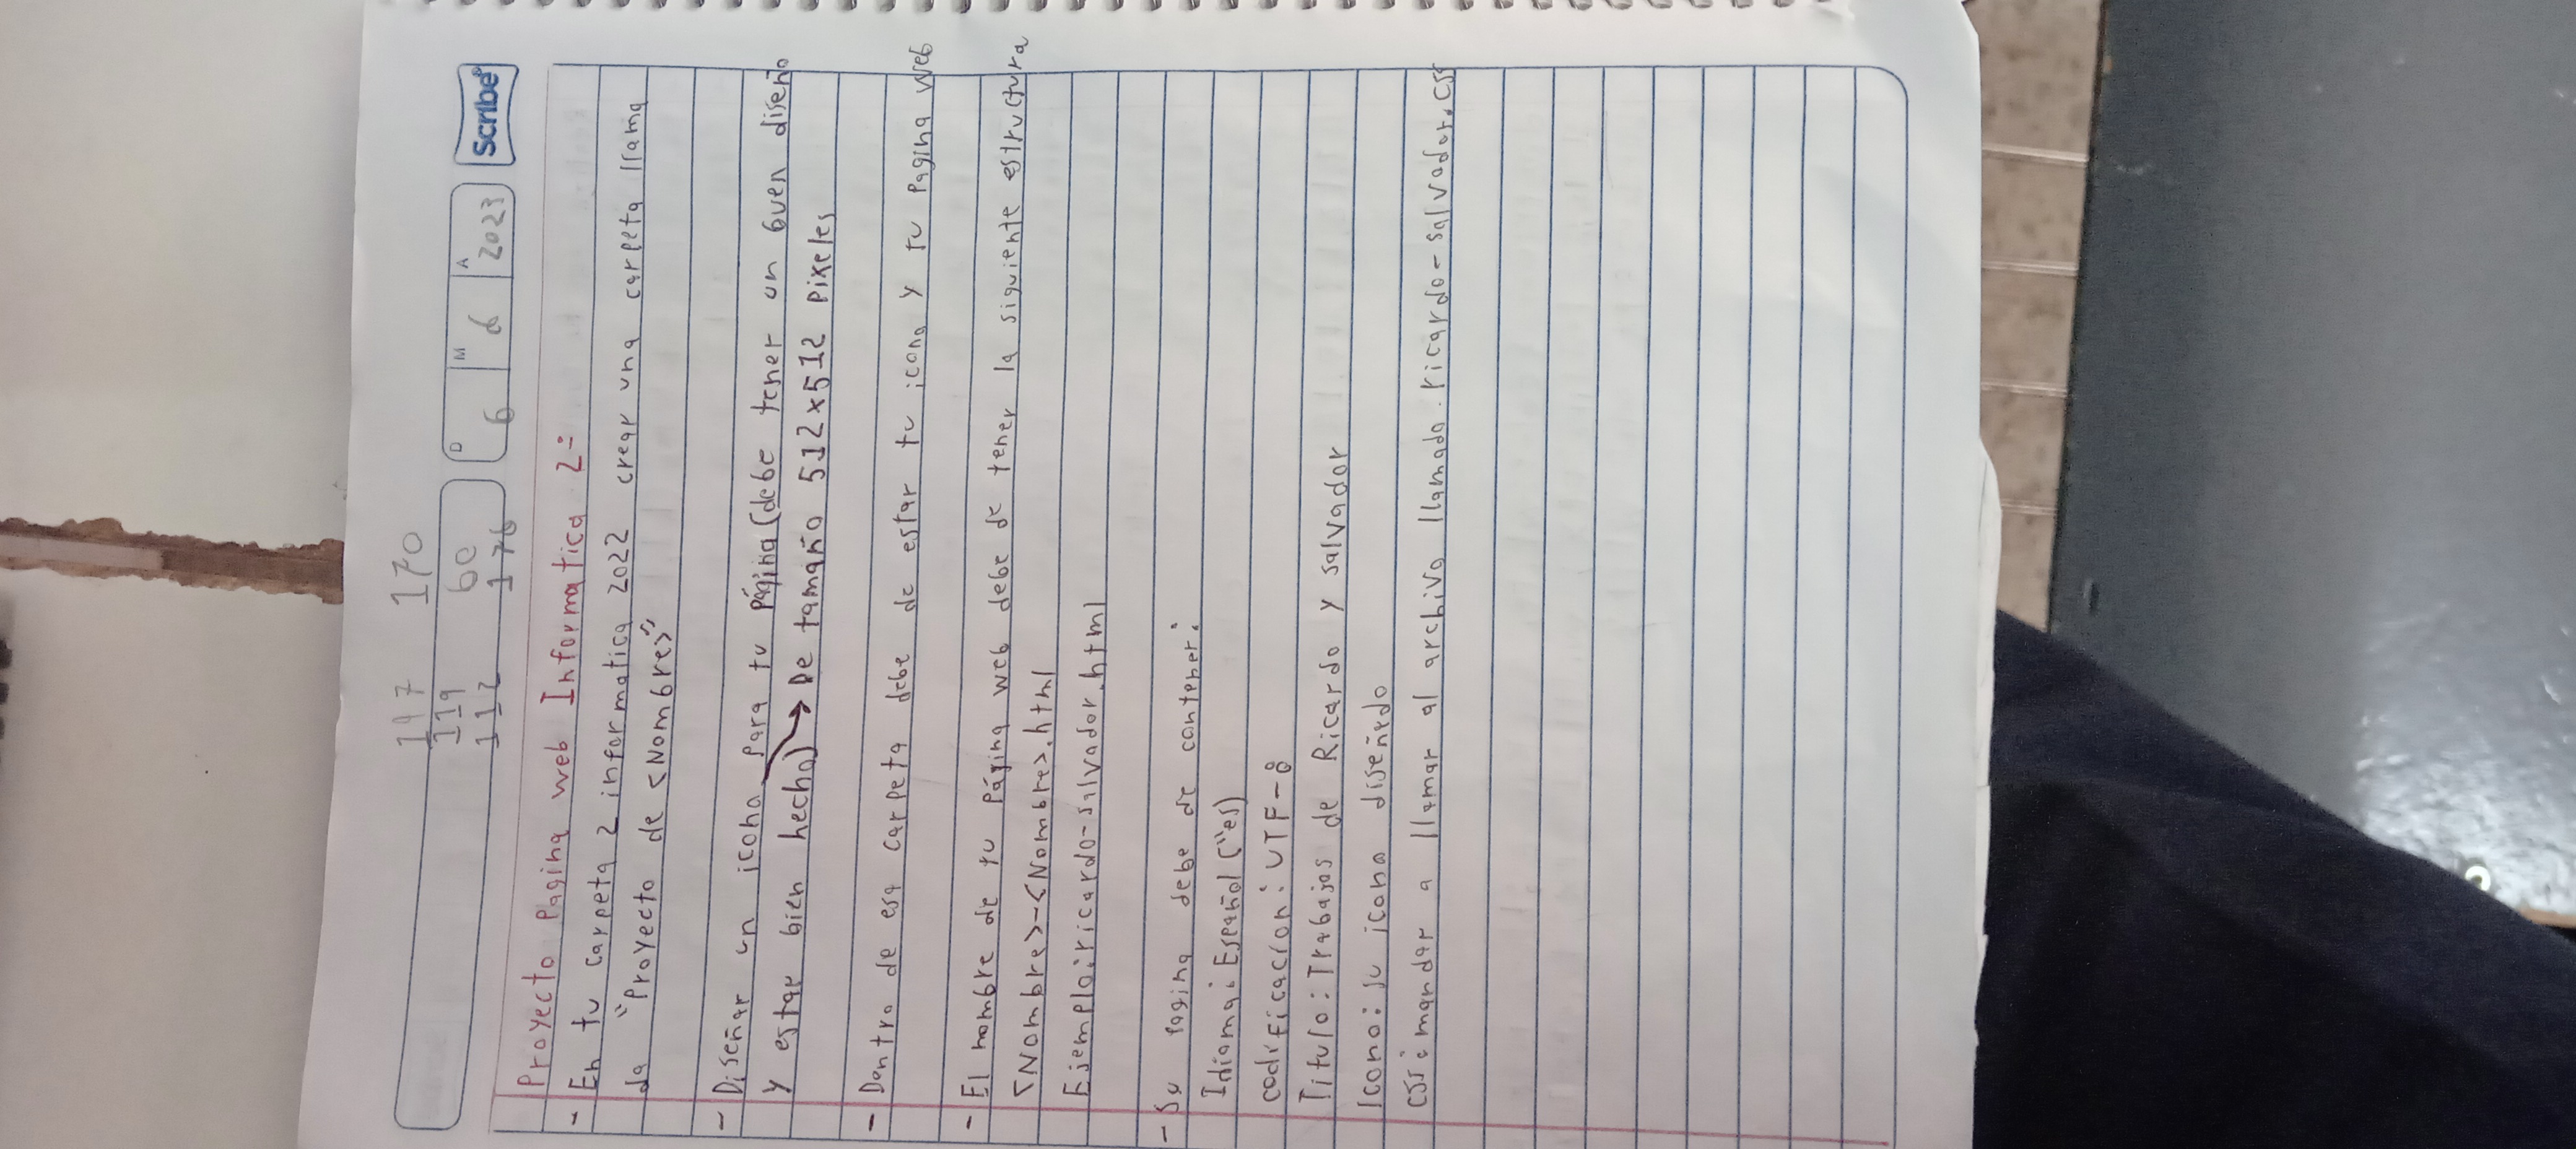 197 170
119 60
112 176
D 6 M 6 A 2023
Scribe
Proyecto Pagina web Informatica 2:
- En tu carpeta 2 informatica 2022 crear una carpeta llama
da "Proyecto de <Nombres>"
- Diseñar un icono para tu página (debe tener un buen diseño
y estar bien hecho) → De tamaño 512x512 pixeles
- Dentro de esa carpeta debe de estar tu icono y tu Pagina web
- El nombre de tu página web debe de tener la siguiente estructura
<Nombre>-<Nombre>.html
Ejemplo: ricardo-salvador.html
- Su pagina debe de contener:
Idioma: Español ("es)
codificacion: UTF-8
Titulo: Trabajos de Ricardo y salvador
Icono: su icono diseñado
css: mandar a llamar al archivo llamado: ricardo-salvador.css